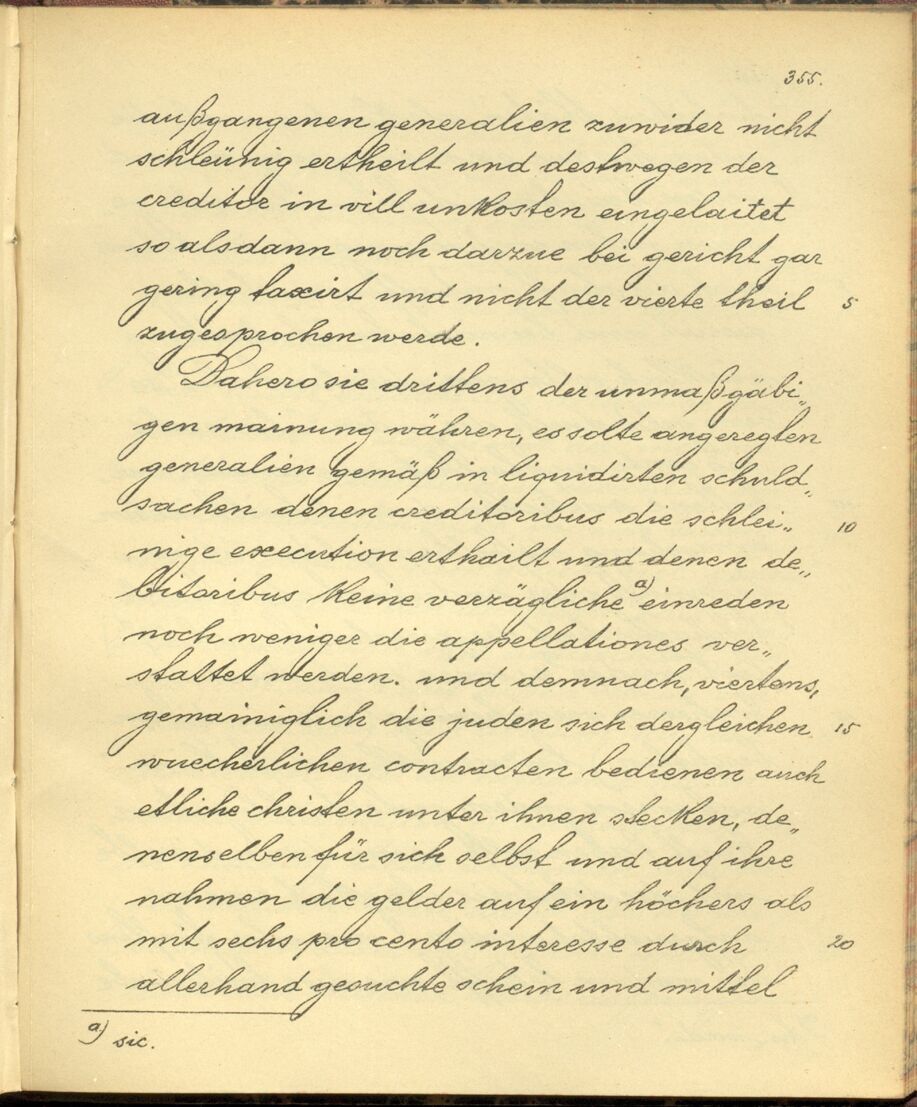 355.
außgangenen generalien zuwider nicht
schleünig ertheilt und destwegen der
creditor in vill unkosten eingelaitet
so alsdann noch darzue bei gericht gar
gering taxirt und nicht der vierte theil 5
zugesprochen werde.
Dahero sie drittens der unmaßgäbi„
gen mainung währen, es solte angeregten
generalien gemäß in liquidirten schuld„
sachen denen creditoribus die schlei„ 10
nige execution erthailt und denen de„
bitoribus keine verzägliche a) einreden
noch weniger die appellationes ver„
stattet werden. und demnach, viertens,
gemainiglich die juden sich dergleichen 15
wuecherlichen contracten bedienen auch
etliche christen unter ihnen stecken, de„
nenselben für sich selbst und auf ihre
nahmen die gelder auf ein höchers als
mit sechs pro cento interesse durch 20
allerhand gesuchte schein und mittel
a) sic.